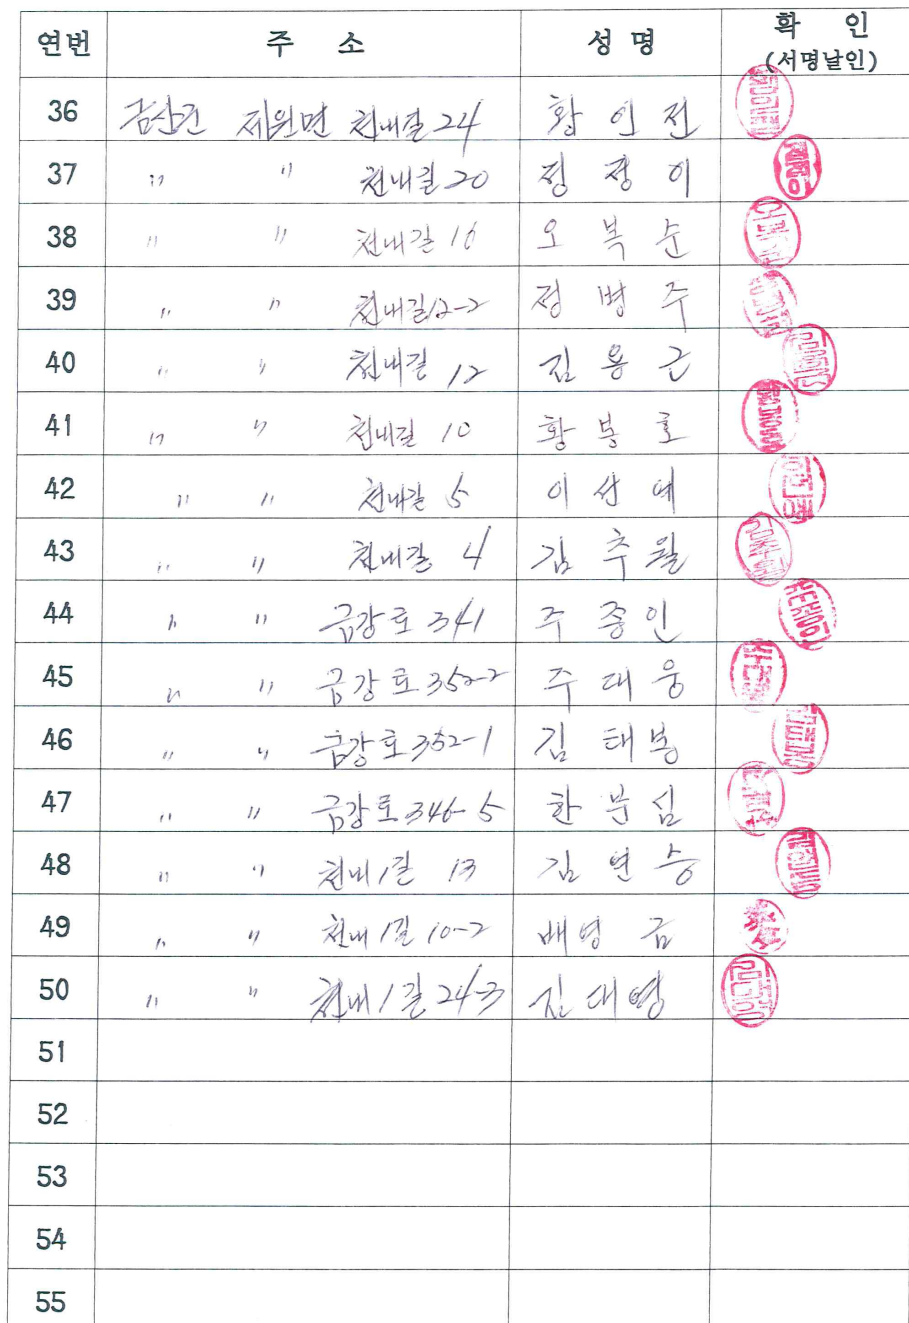 연번 주 소 성 명 확 인
(서명날인)
36 금산군 제원면 천내길 24 황 인 전
37 〃 〃 천내길 20 정 정 이
38 〃 〃 천내길 16 오 복 순
39 〃 〃 천내길 12-2 정 병 주
40 〃 〃 천내길 12 김 용 근
41 〃 〃 천내길 10 황 봉 호
42 〃 〃 천내길 5 이 산 예
43 〃 〃 천내길 4 김 추 월
44 〃 〃 금강로 341 주 종 인
45 〃 〃 금강로 352-2 주 대 웅
46 〃 〃 금강로 352-1 김 태 봉
47 〃 〃 금강로 346-5 한 분 심
48 〃 〃 천내1길 13 김 연 승
49 〃 〃 천내1길 10-2 배 영 금
50 〃 〃 천내1길 24-3 김 대 영
51
52
53
54
55